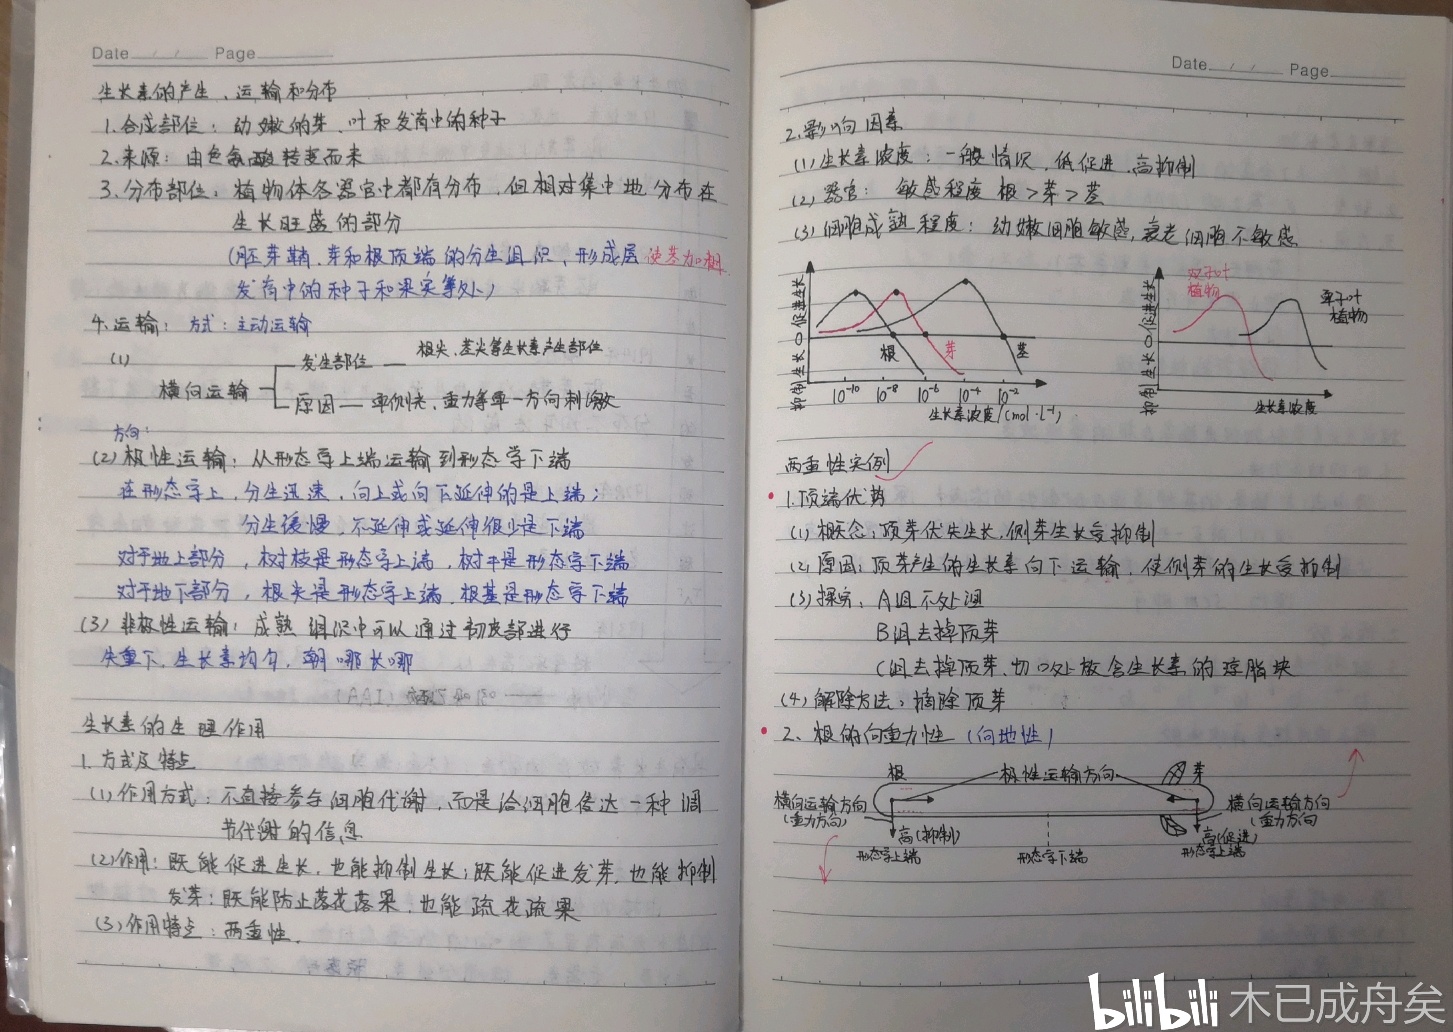 Date / / Page
生长素的产生、运输和分布
1.合成部位：幼嫩的芽、叶和发育中的种子
2.来源：由色氨酸转变而来
3.分布部位：植物体各器官中都有分布，但相对集中地分布在
生长旺盛的部分
(胚芽鞘、芽和根顶端的分生组织，形成层 使茎加粗、
发育中的种子和果实等处)
4.运输：方式：主动运输
(1)
横向运输
发生部位 — 根尖、茎尖等生长素产生部位
原因 — 单侧光、重力等单一方向刺激
方向：
(2)极性运输：从形态学上端运输到形态学下端
在形态学上，分生迅速，向上或向下延伸的是上端；
分生缓慢，不延伸或延伸很少是下端
对于地上部分，树枝是形态学上端，树干是形态学下端
对于地下部分，根尖是形态学上端，根基是形态学下端
(3)非极性运输：成熟组织中可以通过韧皮部进行
失重下，生长素均匀，朝哪长哪
生长素的生理作用
1.方式及特点
(1)作用方式：不直接参与细胞代谢，而是给细胞传达一种调
节代谢的信息
(2)作用：既能促进生长，也能抑制生长；既能促进发芽，也能抑制
发芽；既能防止落花落果，也能疏花疏果
(3)作用特点：两重性.
Date / / Page
2.影响因素
(1)生长素浓度：一般情况，低促进，高抑制
(2)器官：敏感程度 根>芽>茎
(3)细胞成熟程度：幼嫩细胞敏感，衰老细胞不敏感
抑制生长 0 促进生长
根 芽 茎
10⁻¹⁰ 10⁻⁸ 10⁻⁶ 10⁻⁴ 10⁻²
生长素浓度/(mol·L⁻¹)
抑制生长 0 促进生长
双子叶
植物
单子叶
植物
生长素浓度
两重性实例
1.顶端优势
(1)概念：顶芽优先生长，侧芽生长受抑制
(2)原因：顶芽产生的生长素向下运输，使侧芽的生长受抑制
(3)探究：A组不处理
B组去掉顶芽
C组去掉顶芽，切口处放含生长素的琼脂块
(4)解除方法：摘除顶芽
2、根的向重力性 (向地性)
根 极性运输方向 芽
横向运输方向
(重力方向)
高(抑制)
形态学上端
形态学下端
横向运输方向
(重力方向)
高(促进)
形态学上端
bilibili 木已成舟矣